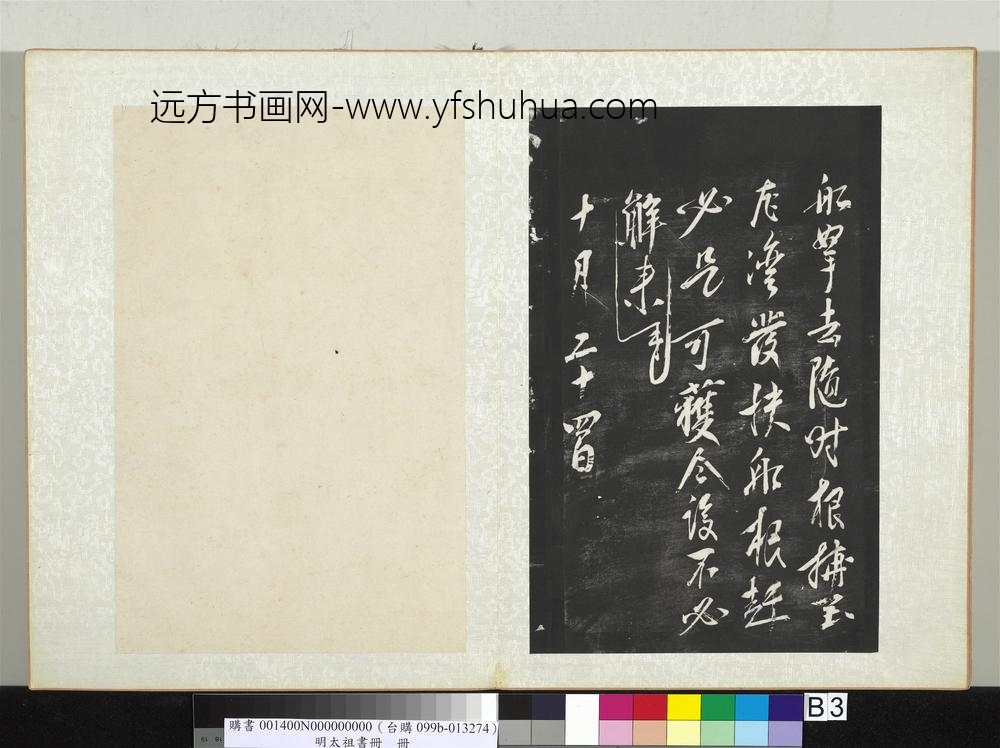 远方书画网-www.yfshuhua.com
船掌去随时根捕至
在湾发扶船根赶
必是可獲今後不必
解来
十月二十四日
B3
購書 001400N000000000 (台購 099b-013274)
明太祖書冊 冊